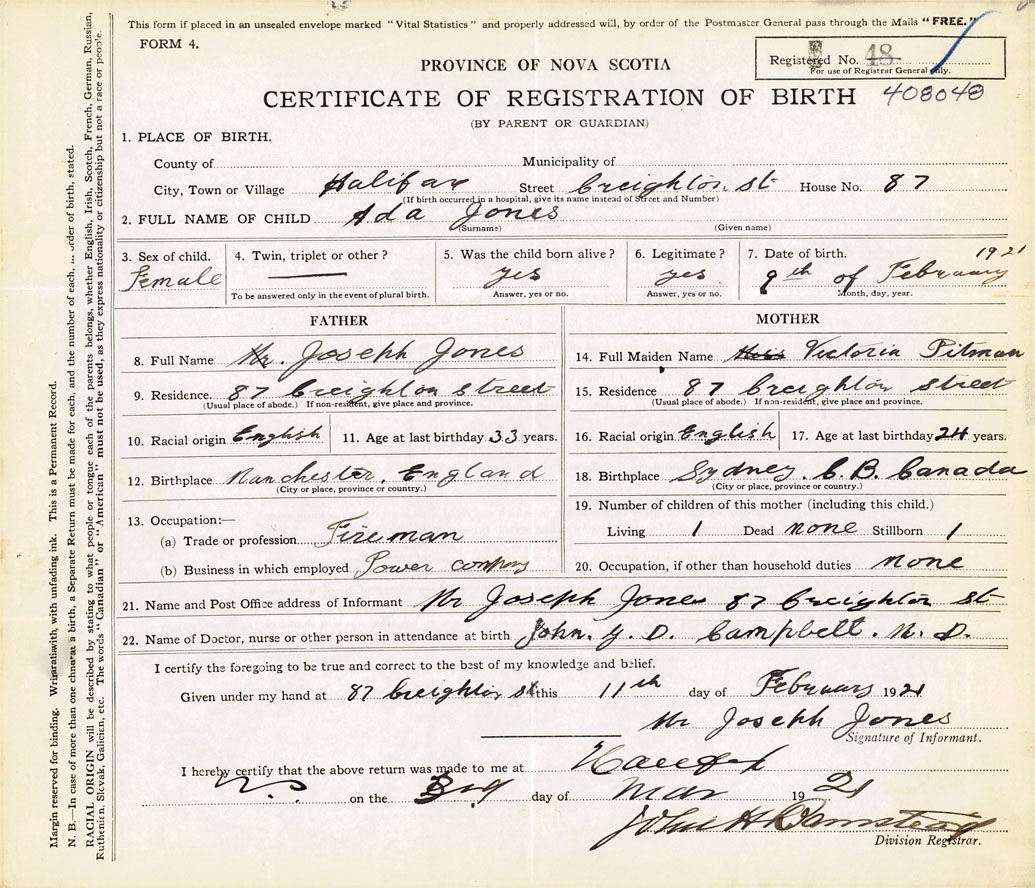 This form if placed in an unsealed envelope marked "Vital Statistics" and properly addressed will, by order of the Postmaster General pass through the Mails "FREE."
FORM 4.
Registered No. 48
For use of Registrar General only.
PROVINCE OF NOVA SCOTIA
CERTIFICATE OF REGISTRATION OF BIRTH 408048
(BY PARENT OR GUARDIAN)
1. PLACE OF BIRTH.
County of Municipality of
City, Town or Village Halifax Street Creighton St House No. 87
(If birth occurred in a hospital, give its name instead of Street and Number)
2. FULL NAME OF CHILD Ada Jones
(Surname) (Given name)
3. Sex of child. Female
4. Twin, triplet or other?
To be answered only in the event of plural birth.
5. Was the child born alive? yes
Answer, yes or no.
6. Legitimate? yes
Answer, yes or no.
7. Date of birth. 1921
9th of February
Month, day, year.
FATHER
8. Full Name Mr. Joseph Jones
9. Residence 87 Creighton Street
(Usual place of abode.) If non-resident, give place and province.
10. Racial origin English 11. Age at last birthday 33 years.
12. Birthplace Manchester, England
(City or place, province or country.)
13. Occupation:—
(a) Trade or profession Fireman
(b) Business in which employed Power company
MOTHER
14. Full Maiden Name Victoria Pitman
15. Residence 87 Creighton Street
(Usual place of abode.) If non-resident, give place and province.
16. Racial origin English 17. Age at last birthday 24 years.
18. Birthplace Sydney. C.B. Canada
(City or place, province or country.)
19. Number of children of this mother (including this child.)
Living 1 Dead none Stillborn 1
20. Occupation, if other than household duties none
21. Name and Post Office address of Informant Mr Joseph Jones 87 Creighton St
22. Name of Doctor, nurse or other person in attendance at birth John. G. D. Campbell. M. D.
I certify the foregoing to be true and correct to the best of my knowledge and belief.
Given under my hand at 87 Creighton St this 11th day of February 1921
Mr Joseph Jones
Signature of Informant.
I hereby certify that the above return was made to me at Halifax
N.S. on the 3rd day of Mar 1921
John H Barnstead
Division Registrar.
Margin reserved for binding. Write with unfading ink. This is a Permanent Record.
N. B.—In case of more than one at a birth, a Separate Return must be made for each, and the number of each, order of birth, stated.
RACIAL ORIGIN will be described by stating to what people or tongue each of the parents belongs, whether English, Irish, Scotch, French, German, Russian,
Ruthenian, Slovak, Galician, etc. The words "Canadian" or "American" must not be used, as they express nationality or citizenship but not a race or people.